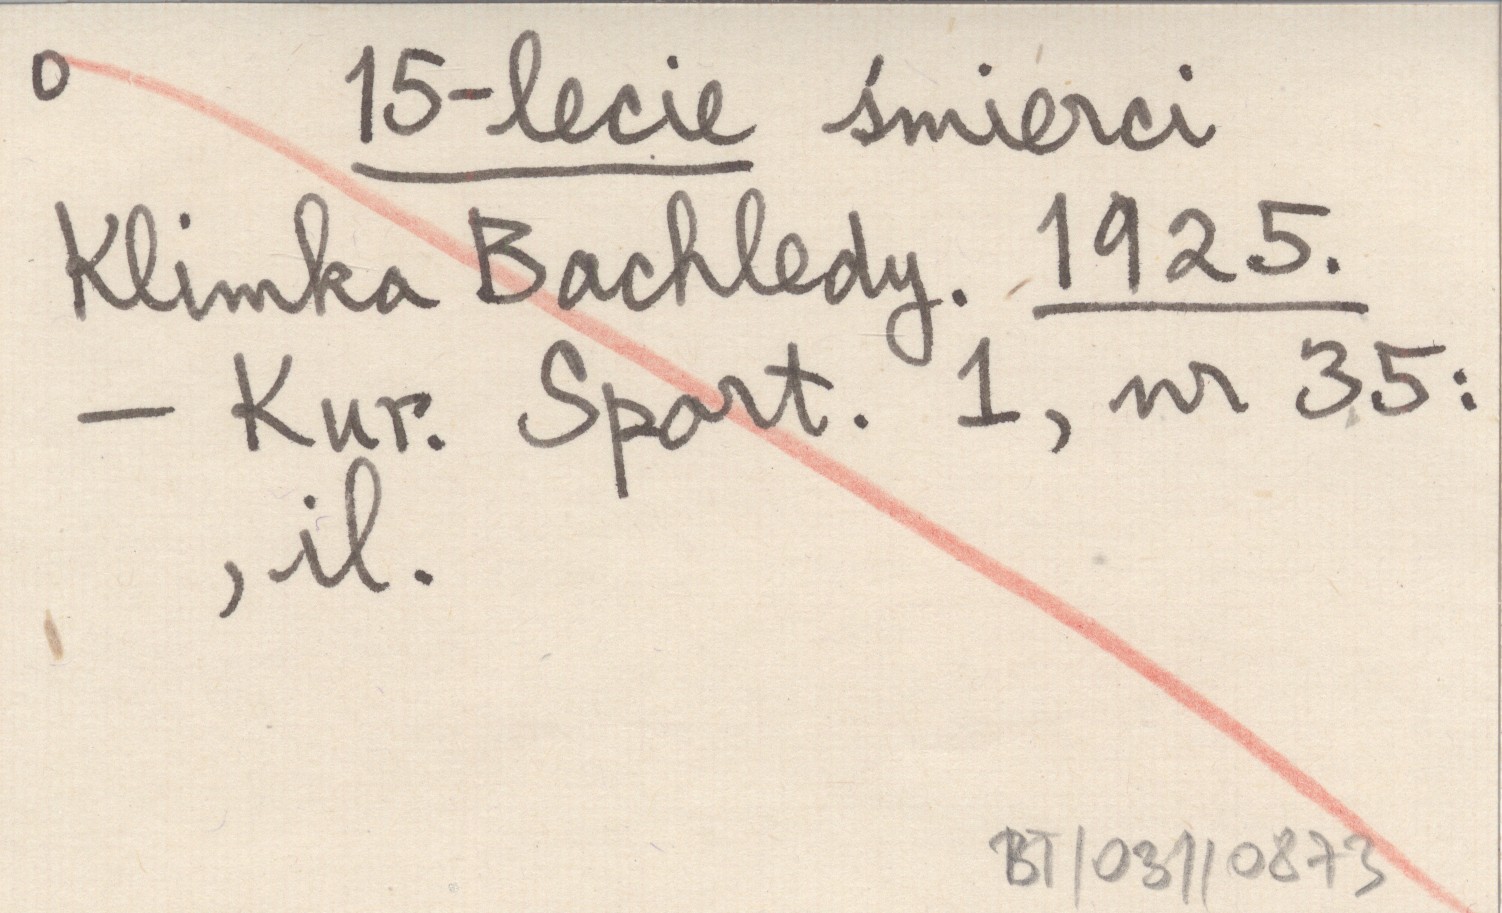 o 15-lecie śmierci
Klimka Bachledy. 1925.
— Kur. Sport. 1, nr 35:
, il.
BT/031/0873